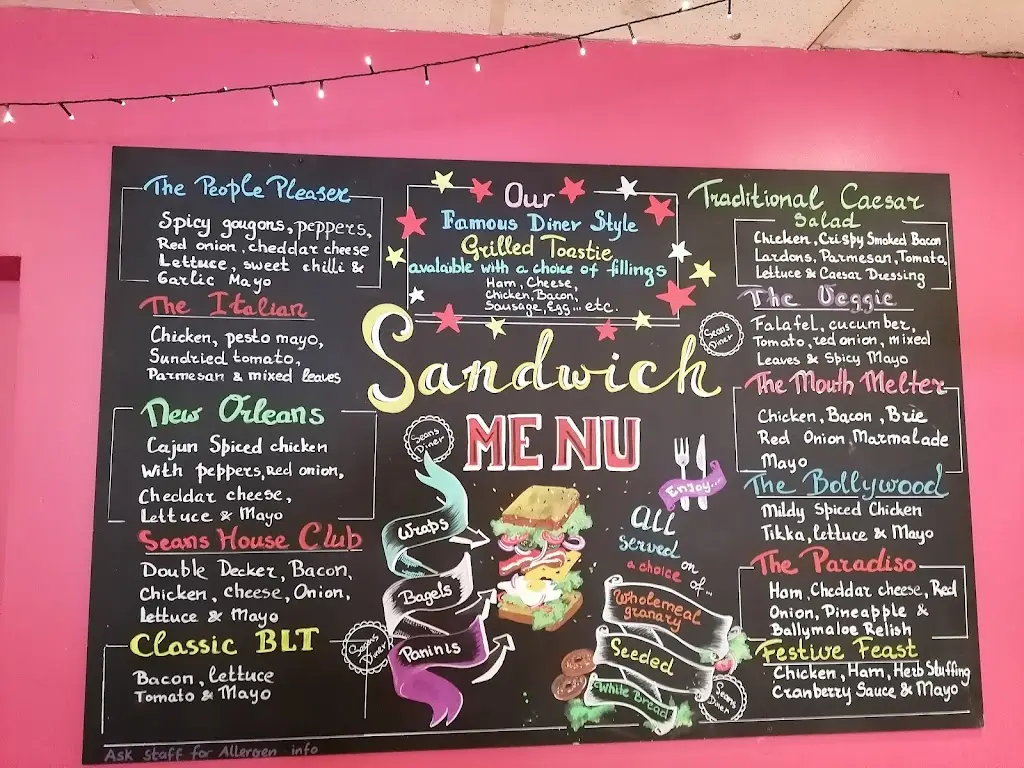 The People Pleaser
Spicy gougons, peppers,
Red onion, cheddar cheese
Lettuce, sweet chilli &
Garlic Mayo
The Italian
Chicken, pesto mayo,
Sundried tomato,
Parmesan & mixed leaves
New Orleans
Cajun Spiced chicken
With peppers, Red onion,
Cheddar cheese,
Lettuce & Mayo
Seans House Club
Double Decker, Bacon,
Chicken, cheese, Onion,
lettuce & Mayo
Classic BLT
Bacon, lettuce
Tomato & Mayo
Ask staff for Allergen info
Our
Famous Diner Style
Grilled Toastie
avalaible with a choice of fillings
Ham, Cheese,
Chicken, Bacon,
Sausage, Egg... etc.
Sandwich
MENU
Seans
Diner
Wraps
Bagels
Paninis
Seans
Diner
Enjoy...
All
Served
on
a choice of...
Wholemeal
granary
Seeded
White Bread
Seans
Diner
Seans
Diner
Traditional Caesar
Salad
Chicken, Crispy Smoked Bacon
Lardons, Parmesan, Tomato,
Lettuce & Caesar Dressing
The Veggie
Falafel, cucumber,
Tomato, red onion, mixed
Leaves & Spicy Mayo
The Mouth Melter
Chicken, Bacon, Brie
Red Onion Marmalade
Mayo
The Bollywood
Mildy Spiced Chicken
Tikka, lettuce & Mayo
The Paradiso
Ham, Cheddar cheese, Red
Onion, Pineapple &
Ballymaloe Relish
Festive Feast
Chicken, Ham, Herb Stuffing
Cranberry Sauce & Mayo